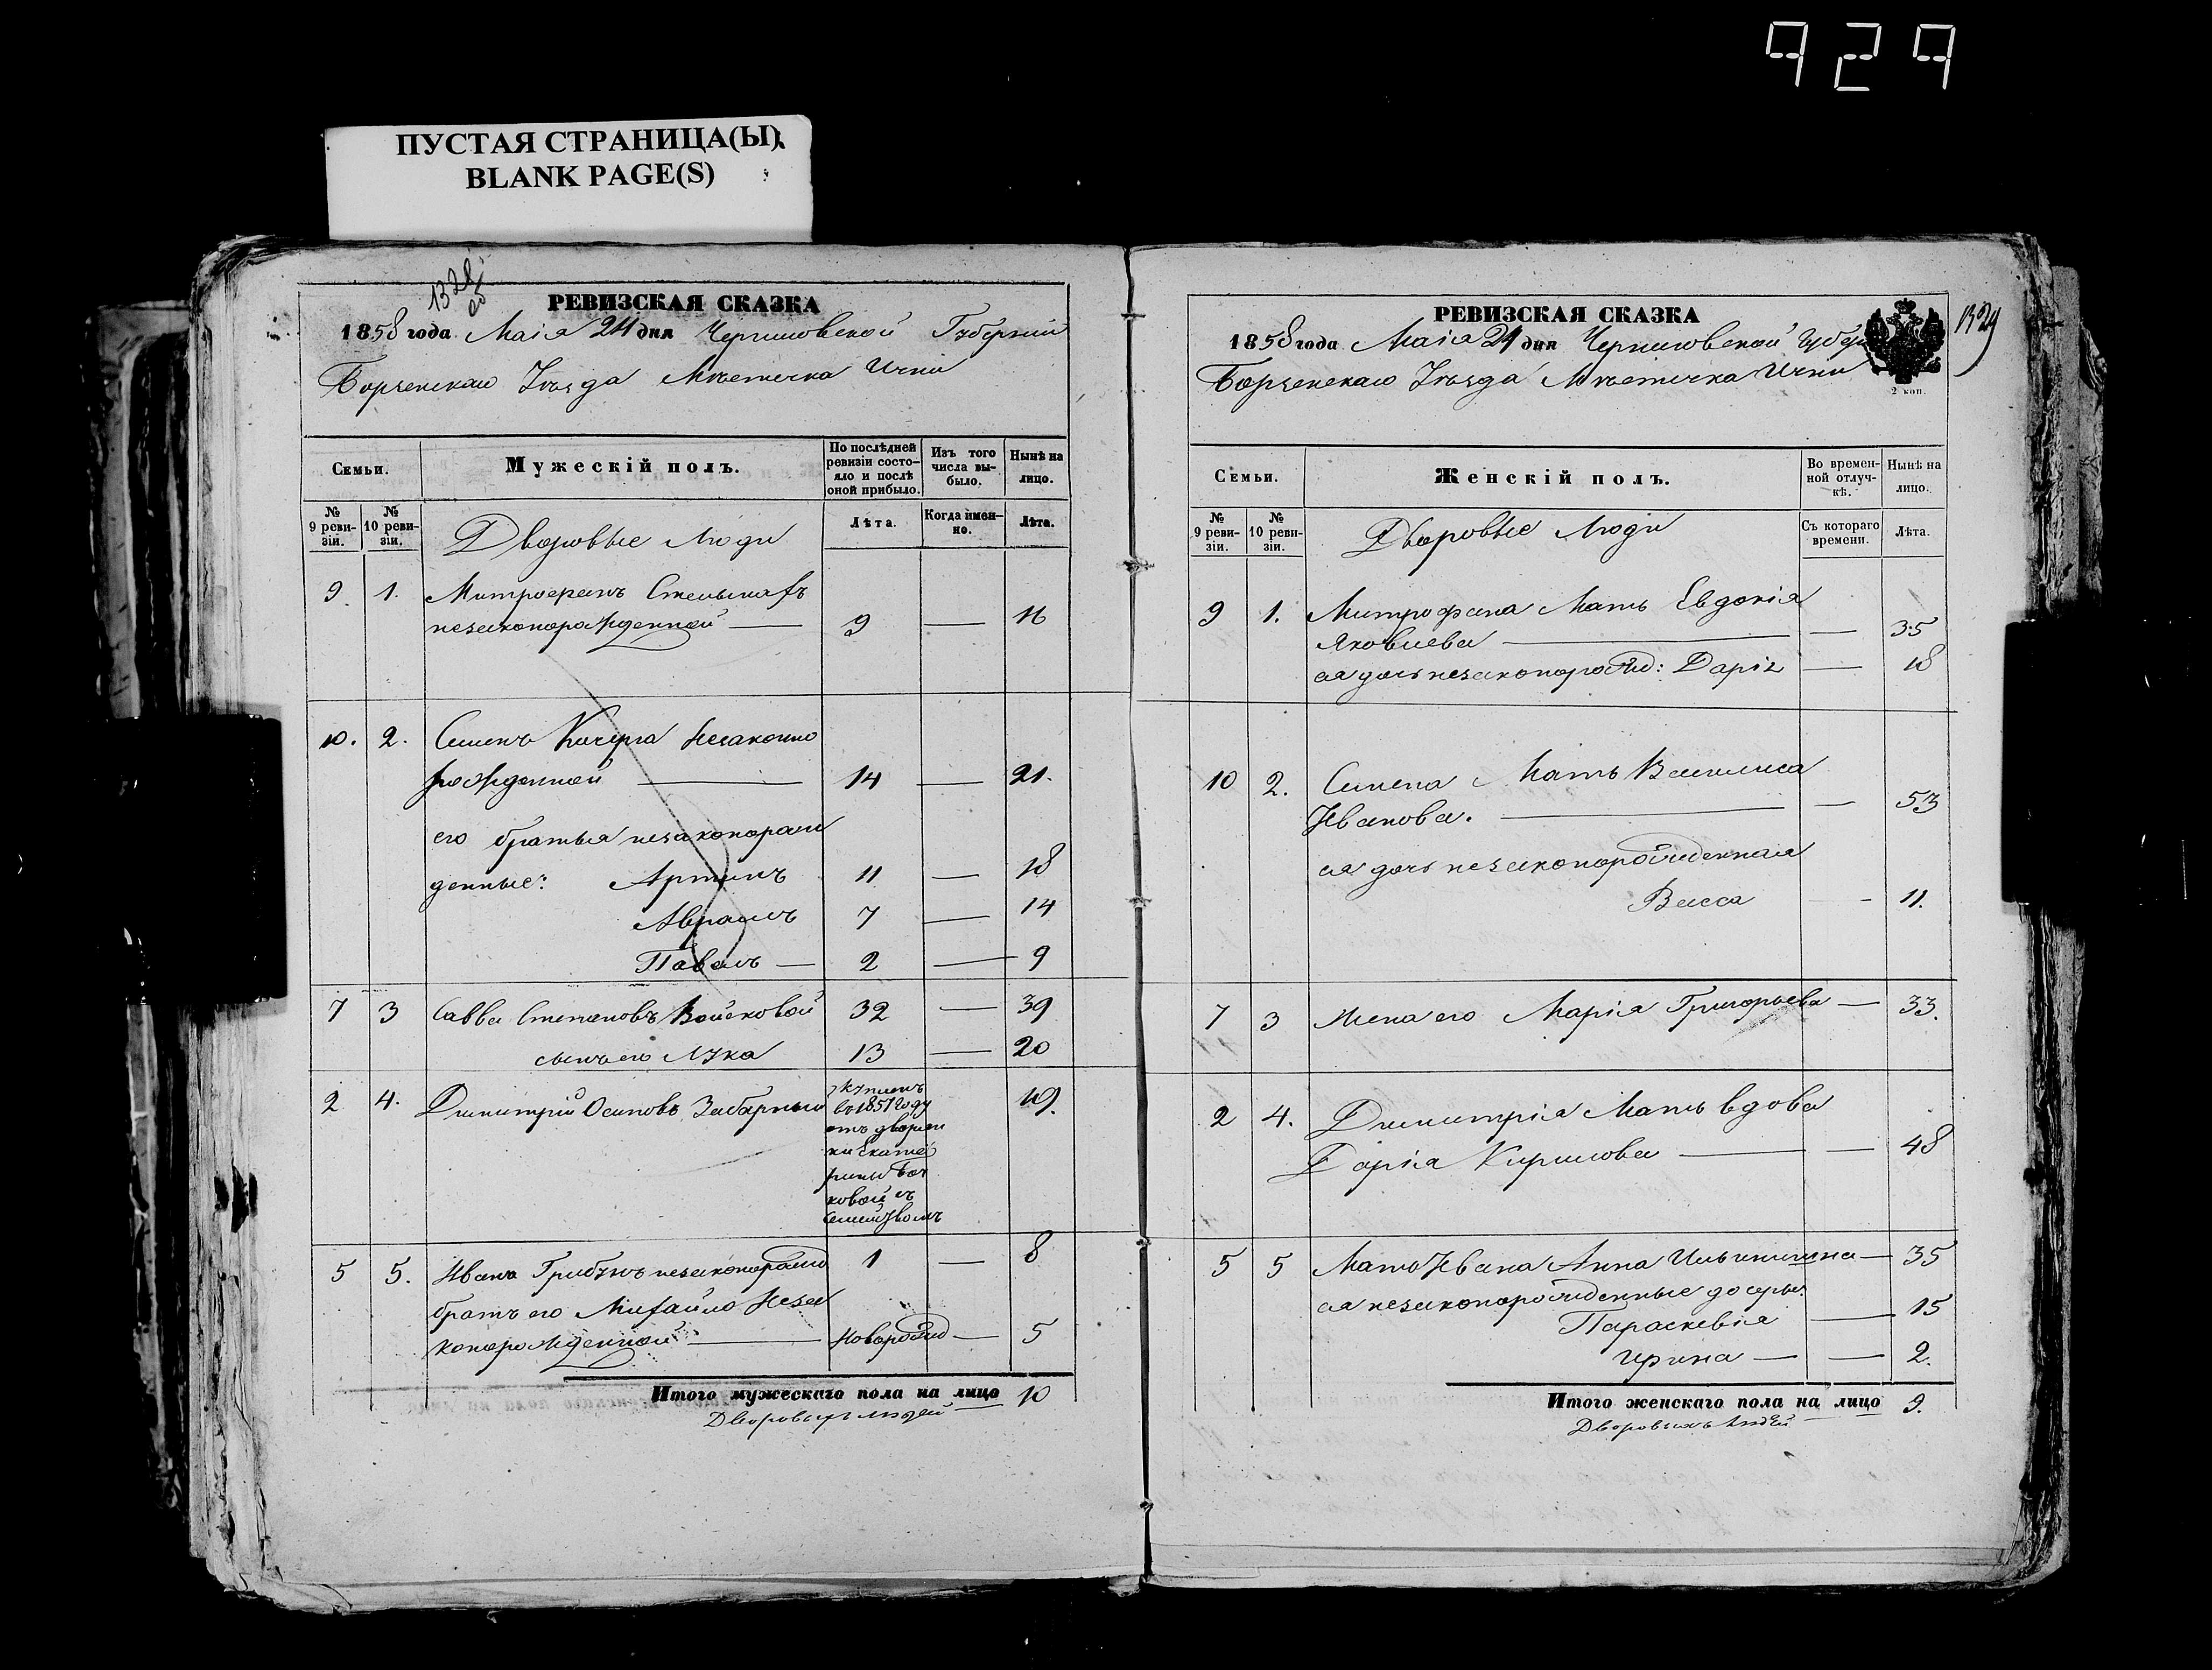 929
ПУСТАЯ СТРАНИЦА(Ы)
BLANK PAGE(S)
1328
об
РЕВИЗСКАЯ СКАЗКА
1858 года Маія 24 дня Черниговской Губерніи
Борзенскаго Уѣзда Мѣстечка Ични
Семьи.
Мужескій полъ.
По послѣдней ревизіи состояло и послѣ оной прибыло.
Изъ того числа выбыло.
Нынѣ на лицо.
№ 9 ревизіи.
№ 10 ревизіи.
Дворовые Люди
Лѣта.
Когда именно.
Лѣта.
9. 1. Митрофанъ Стельмахъ
незаконорожденной — 9 — 16
10. 2. Семенъ Кочерга Незаконно
рожденной — 14 — 21.
его братья незаконорож
денные: Артемъ 11 — 18
Аврамъ 7 — 14
Павелъ — 2 — 9
7 3 Савва Степановъ Войсковой 32 — 39
сынъ его Лука 13 — 20
2 4. Димитрій Осиповъ Забарный 19.
купленъ
въ 1851 году
отъ дворян
ки Екате
рины
ковой съ
Семействомъ
5 5. Иванъ Грибунъ незаконорожд 1 — 8
братъ его Михайло Неза
конорожденной — Новорожд — 5
Итого мужескаго пола на лицо 10
Дворовыхъ людей
1329
РЕВИЗСКАЯ СКАЗКА
1858 года Маія 24 дня Черниговской Губер
Борзенскаго Уѣзда Мѣстечка Ични
2 коп.
Семьи.
Женскій полъ.
Во временной отлучкѣ.
Нынѣ на лицо.
№ 9 ревизіи.
№ 10 ревизіи.
Дворовые Люди
Съ котораго времени.
Лѣта.
9 1. Митрофана Мать Евдокія
Яковлева — — 35
ея дочь незаконорожд: Дарія — 18
10 2. Семена Мать Василиса
Иванова. — — 53
ея дочь незаконорожденная
Васса — 11.
7 3 Жена его Марія Григорьева — 33.
2 4. Димитрія Мать вдова
Дарія Кирилова — — 48
5 5 Мать Ивана Анна — 35
ея незаконорожденные дочеры:
Параскевія — 15
Ирина — — 2.
Итого женскаго пола на лицо 9.
Дворовыхъ Людей